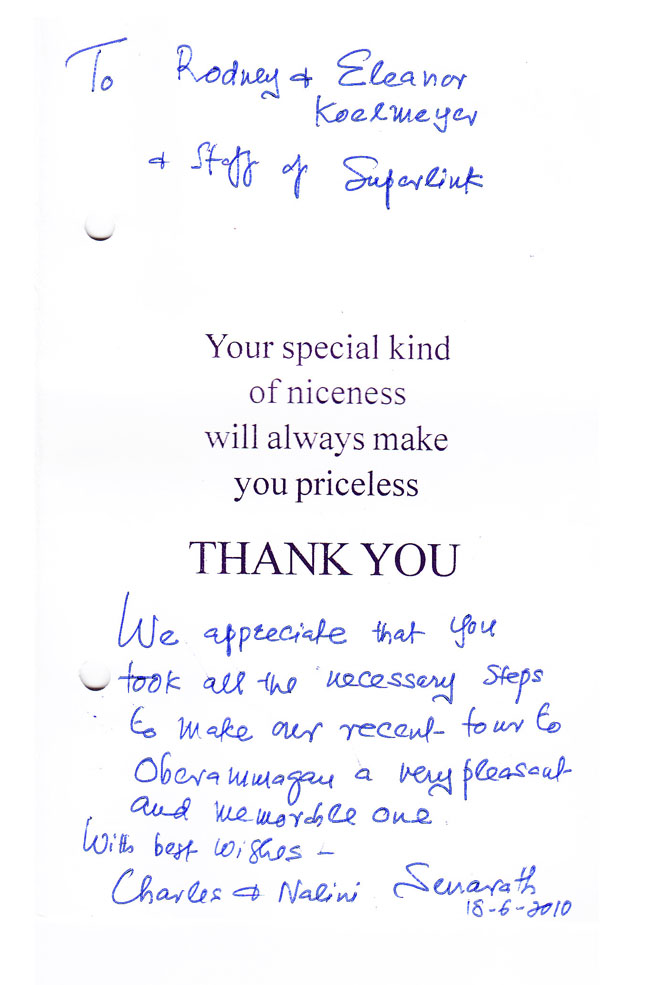 To Rodney & Eleanor
Koelmeyer
& Staff of Superlink
Your special kind
of niceness
will always make
you priceless
THANK YOU
We appreciate that you
took all the necessary steps
to make our recent tour to
Oberammagau a very pleasant
and memorable one.
With best wishes –
Charles & Nalini Senarath
18-6-2010